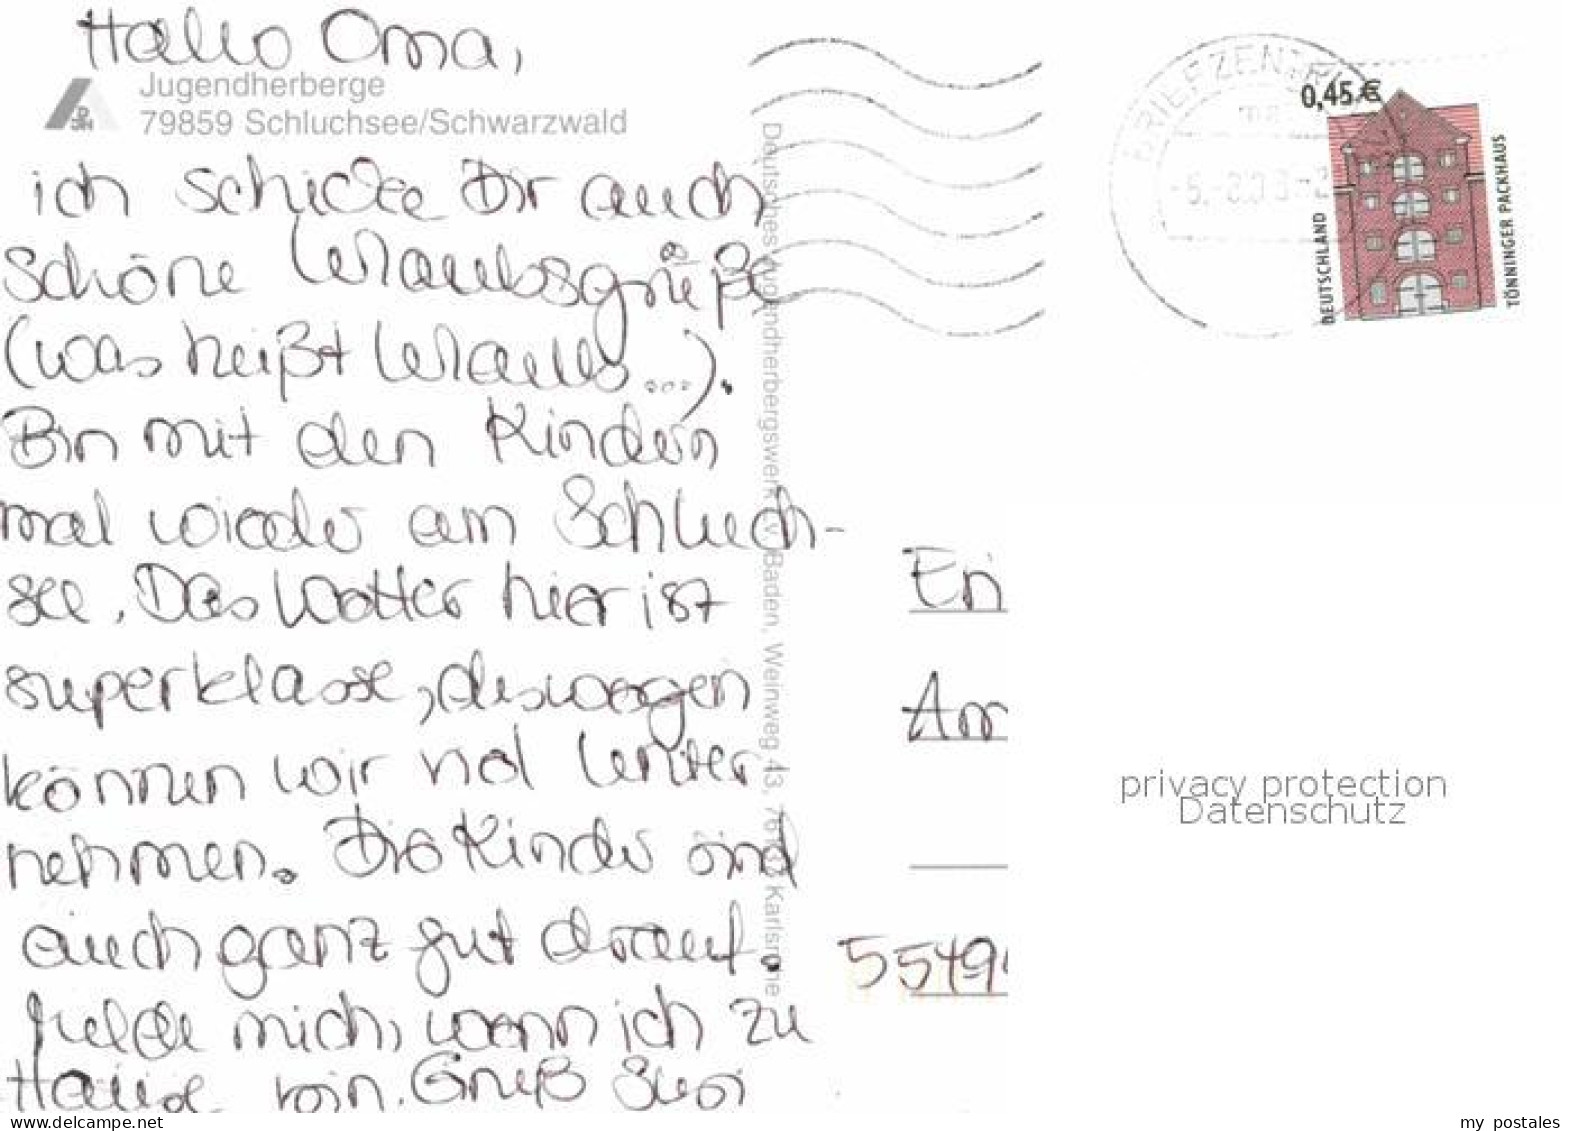 Hallo Oma,
Jugendherberge
79859 Schluchsee/Schwarzwald
ich schicke Dir auch
schöne Urlaubsgrüße
(was heißt Urlaub ...).
Bin mit den Kindern
mal wieder am Schluch-
see. Das Wetter hier ist
superklasse, deswegen
können wir viel unter
nehmen. Die Kinder sind
auch ganz gut drauf.
Melde mich, wenn ich zu
Hause bin. Gruß Susi
Deutsches Jugendherbergswerk LV Baden, Weinweg 43, 76137 Karlsruhe
BRIEFZENTRUM
0,45 €
DEUTSCHLAND
TÖNNINGER PACKHAUS
Eri
Am
5549
privacy protection
Datenschutz
www.delcampe.net
my_postales